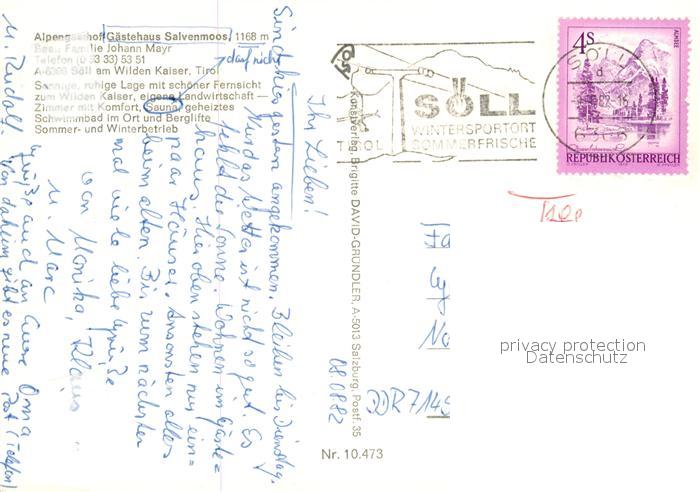 Alpengasthof Gästehaus Salvenmoos, 1168 m
Bes.: Familie Johann Mayr
Telefon (0 53 33) 53 51
A-6306 Söll am Wilden Kaiser, Tirol
Sonnige, ruhige Lage mit schöner Fernsicht
zum Wilden Kaiser, eigene Landwirtschaft —
Zimmer mit Komfort, Sauna, geheiztes
Schwimmbad im Ort und Berglifte
Sommer- und Winterbetrieb
darf nicht
Ihr Lieben!
Sind hier gestern angekommen. Bleiben bis Dienstag.
Nur das Wetter ist nicht so gut. Es
fehlt die Sonne. Wohnen im Gäste=
haus. Hier oben stehen nur ein=
paar Häuser. Ansonsten alles
beim alten. Bis zum nächsten
mal viele liebe Grüße
von Monika, Klaus
u. Marc
Grüße auch an Eure Oma
u. Rudolf.
Von daheim gibt es neue Post
Telefon!
08.08.82
Kunstverlag Brigitte DAVID-GRÜNDLER, A-5013 Salzburg, Postf. 35
Nr. 10.473
SÖLL
WINTERSPORTORT
TIROL SOMMERFRISCHE
SÖLL
6306
4 S
ALMSEE
REPUBLIK ÖSTERREICH
DDR 714
privacy protection
Datenschutz